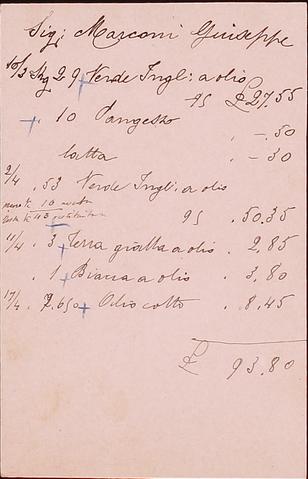 Sig; Marconi Giuseppe
10/3 Kg 29 Verde Ingl: a olio
95 £ 27,55
" 10 Pangesso
" -,50
latta " -30
2/4 . 53 Verde Ingl: a olio
meno K 10
K 43
95 . 50.35
11/4 . 3 Terra gialla a olio . 2,85
. 1 Biacca a olio . 3,80
17/4 . 7.650 Olio cotto . 8.45
£ 93.80